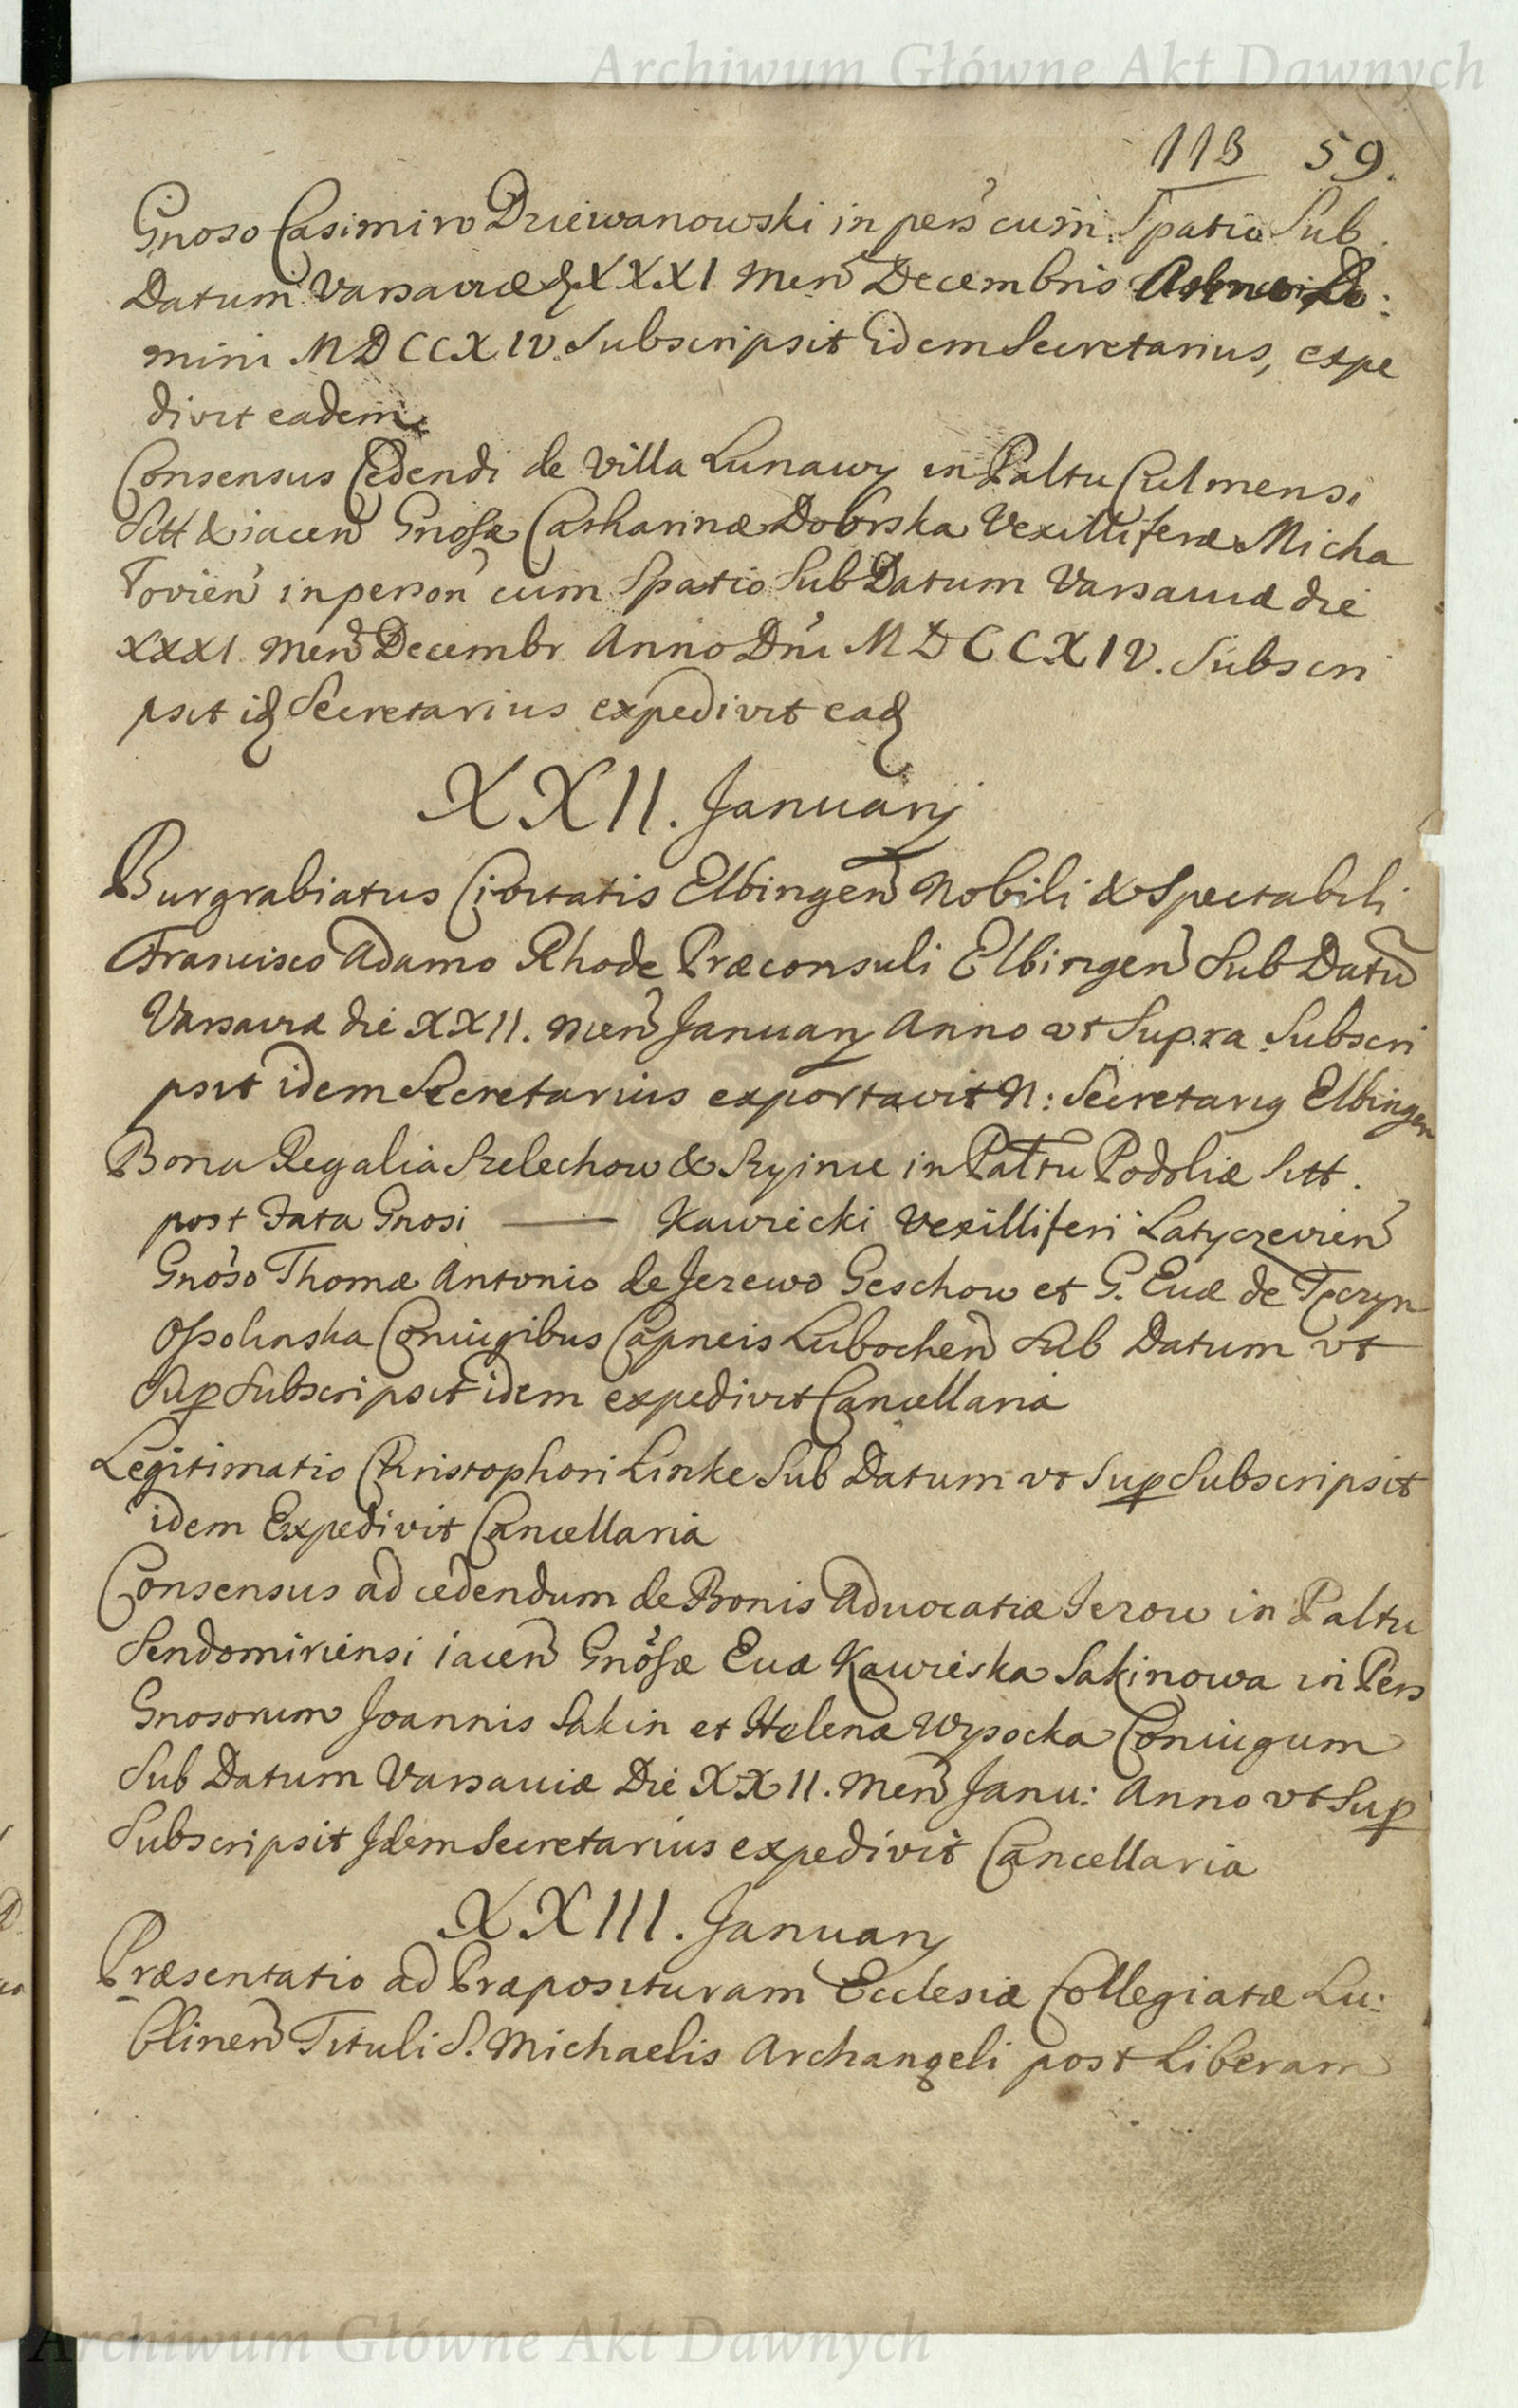 Archiwum Główne Akt Dawnych
113 59.
Gnoso Casimiro Dziewanowski in pers cum Spatio Sub
Datum Varsaviæ d XXXI Men Decembris Do:
mini MDCCXIV. Subscripsit idem Secretarius, expe
divit eadem
Consensus Cedendi de Villa Lunawy in Paltu Culmensi
Sitt & iacen Gnosæ Catharinæ Dobrska Vexilliferæ Micha
lovien in person cum Spatio Sub Datum Varsaviæ die
XXXI. Men Decembr Anno Dni MDCCXIV. Subscri
psit id Secretarius expedivit ead
XXII. Januarij
Burgrabiatus Civitatis Elbingen Nobili & Spectabili
Francisco Adamo Rhode Præconsuli Elbingen Sub Datu
Varsaviæ die XXII. Men Januarij Anno vt Supra Subscri
psit idem Secretarius exportavit N: Secretarig Elbingen
Bona Regalia Szelechow & Szyince in Paltu Podoliæ Sitt.
post Fata Gnosi —— Kawiecki Vexilliferi Latyczevien
Gnoso Thomæ Antonio de Jezewo Geschow et G. Euæ de Tęczyn
Ossolinska Coniugibus Capneis Lubochen Sub Datum vt
Sup Subscripsit idem expedivit Cancellaria
Legitimatio Christophori Linke Sub Datum vt Sup Subscripsit
idem Expedivit Cancellaria
Consensus ad cedendum de Bonis Aduocatiæ Jezow in Paltu
Sendomiriensi iacen Gnosæ Euæ Kawieska Sakinowa in Pers
Gnosorum Joannis Sakin et Helena Wysocka Coniugum
Sub Datum Varsauiæ Die XXII. Men Janu: Anno vt Sup
Subscripsit Idem Secretarius expedivit Cancellaria
XXIII. Januarij
Præsentatio ad Præposituram Ecclesiæ Collegiatæ Lu:
blinen Tituli S. Michaelis Archangeli post Liberam
Archiwum Główne Akt Dawnych